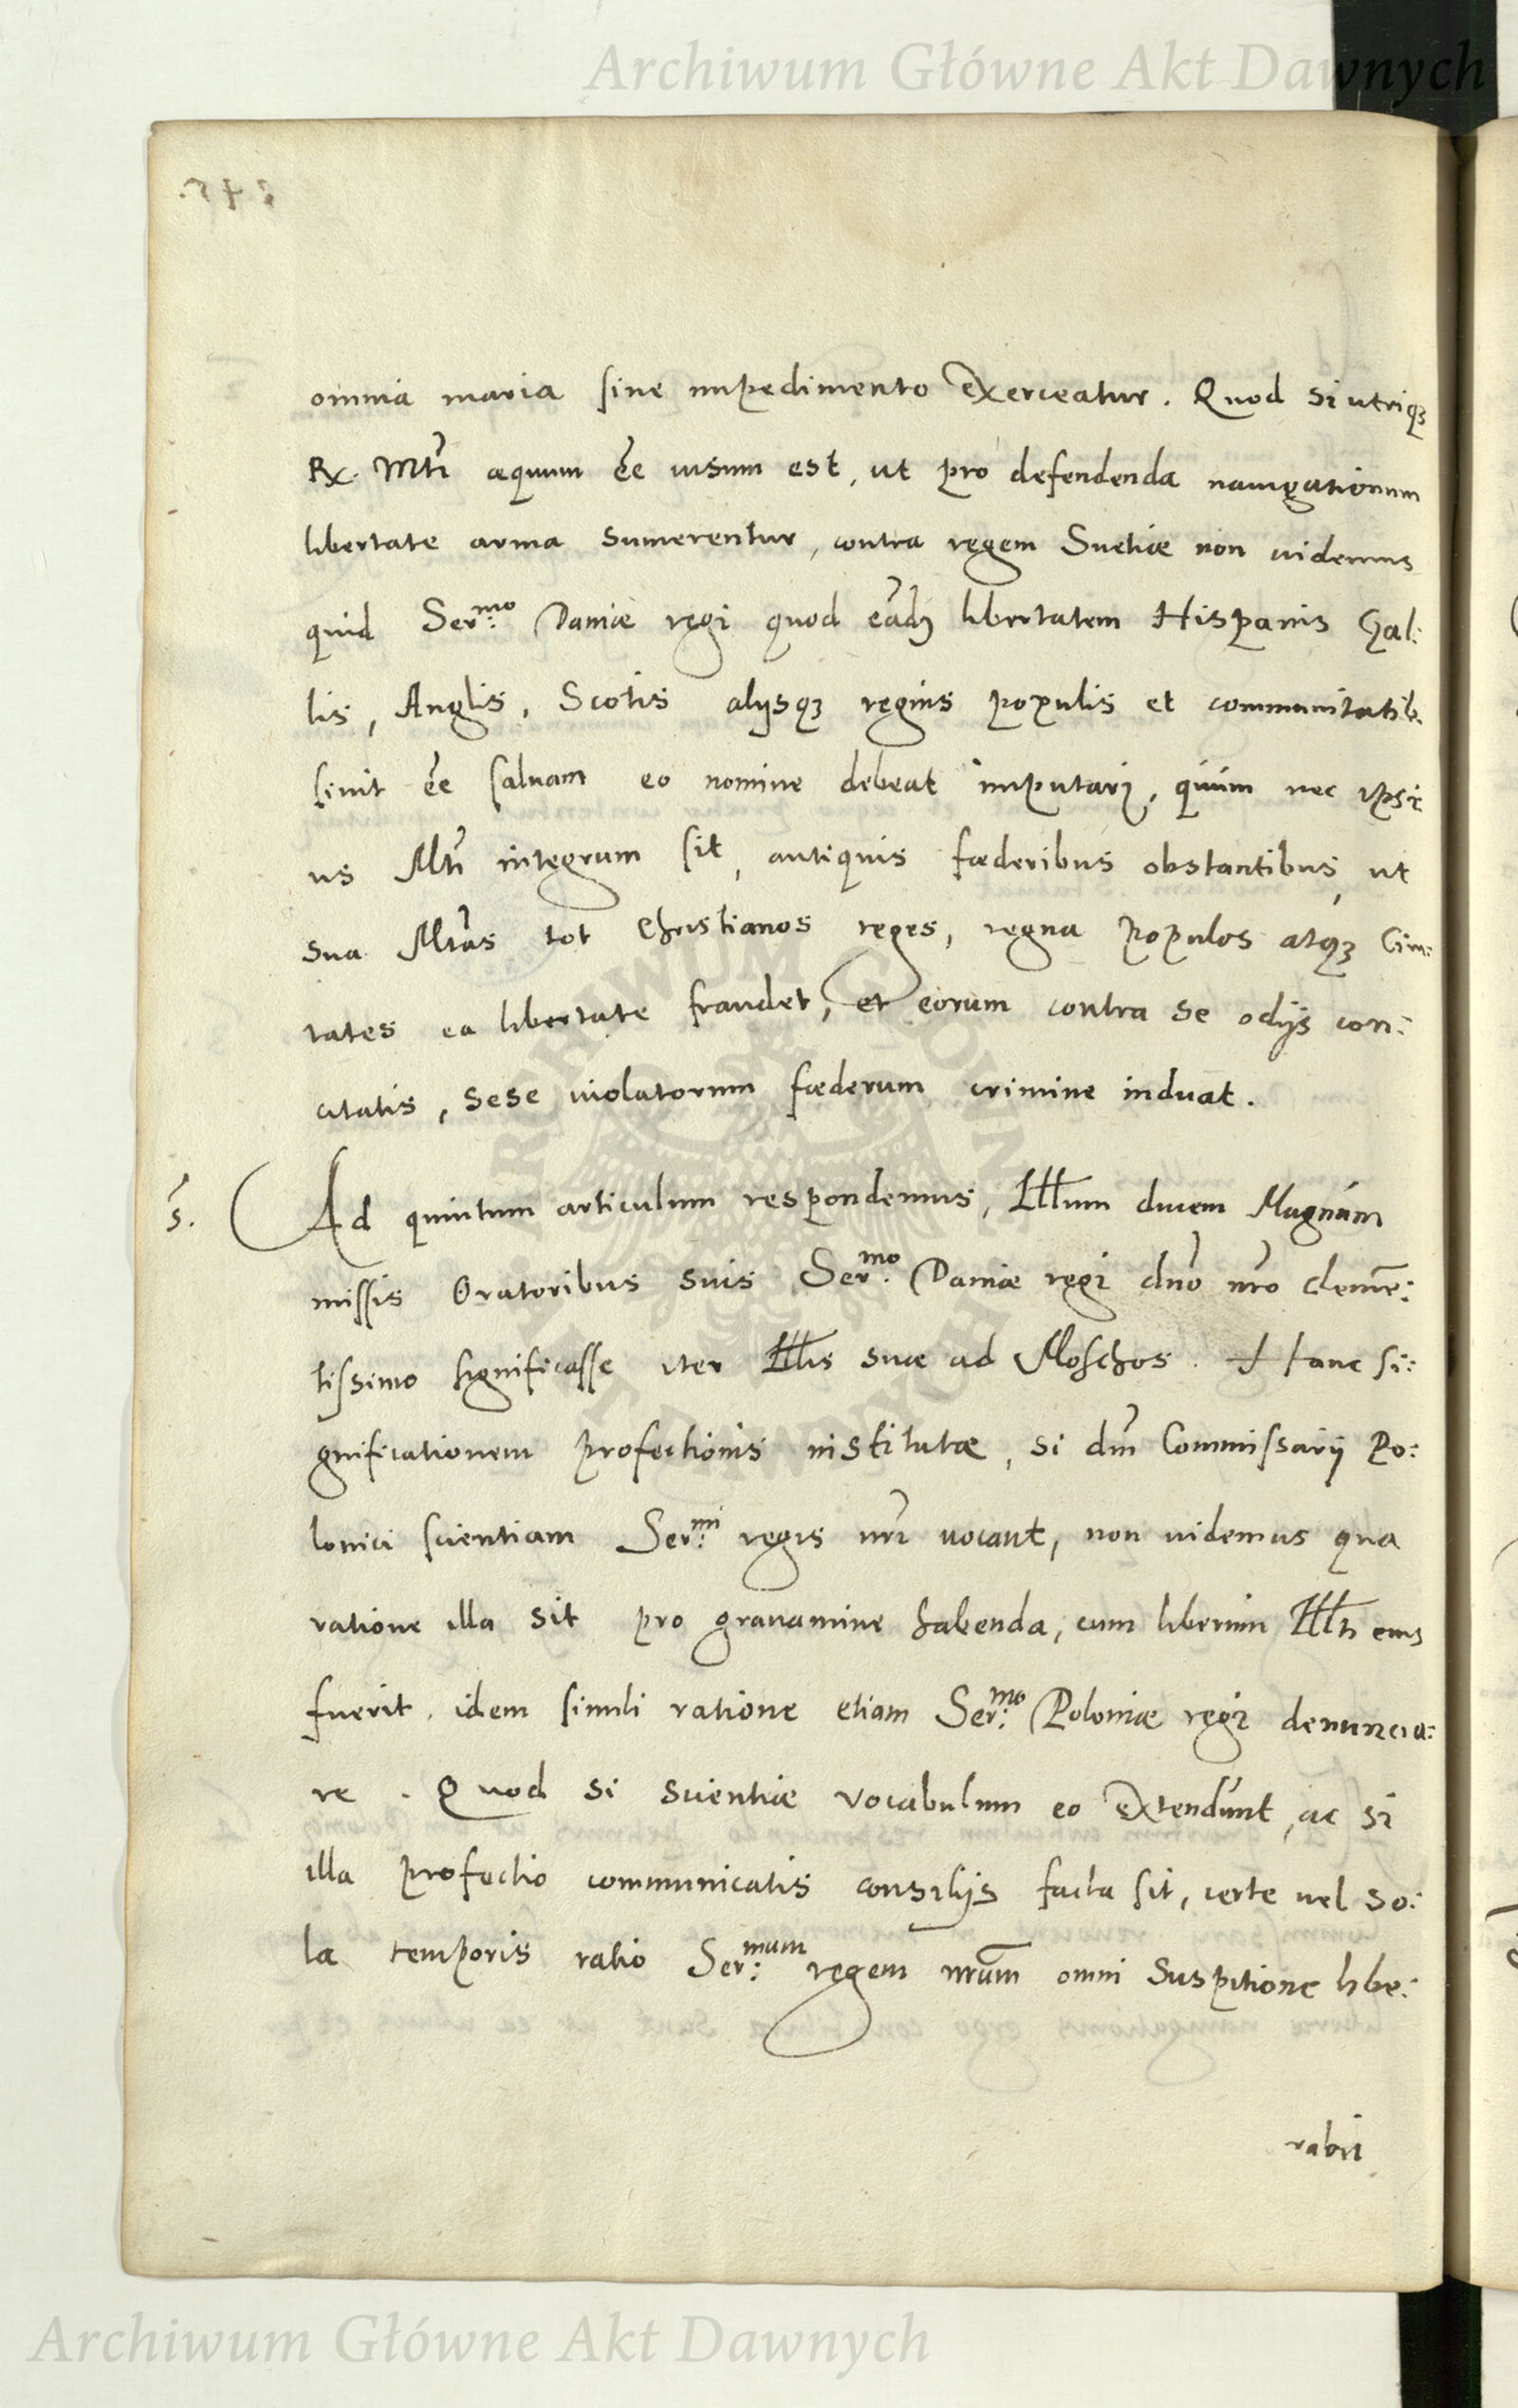 Archiwum Główne Akt Dawnych
omnia maria sine impedimento exerceatur. Quod si utriq₃
R. Mti aequum ēe uisum est, ut pro defendenda nauigationum
libertate arma sumerentur, contra regem Suetiae non uidemus
quid Ser:mo Daniae regi quod eād₃ libertatem Hispanis Gal:
lis, Anglis, Scotis alijsq₃ regnis populis et communitatib.
sinit ēe saluam eo nomine debeat imputari, quum nec ipsi
us Mti integrum sit, antiquis foederibus obstantibus, ut
sua Mtas tot Christianos reges, regna populos atq₃ Ciui:
tates ea libertate fraudet, et eorum contra se odijs con:
citatis, sese uiolatorum foederum crimine induat.
5. Ad quintum articulum respondemus, Illum ducem Magnum
missis Oratoribus suis Ser:mo Daniae regi dno nro cleme:
tissimo significasse iter Illis suae ad Moschos. Hanc si:
gnificationem profectionis institutae, si dni Commissarij Po:
lonici scientiam Ser:mi regis nri uocant, non uidemus qua
ratione illa sit pro grauamine habenda, cum liberum Illti eius
fuerit, idem simili ratione etiam Ser:mo Poloniae regi denuncia:
re. Quod si scientiae vocabulum eo extendunt, ac si
illa profectio communicatis consilijs facta sit, certe uel so:
la temporis ratio Ser:mum regem nrum omni suspitione libe:
rabit
Archiwum Główne Akt Dawnych